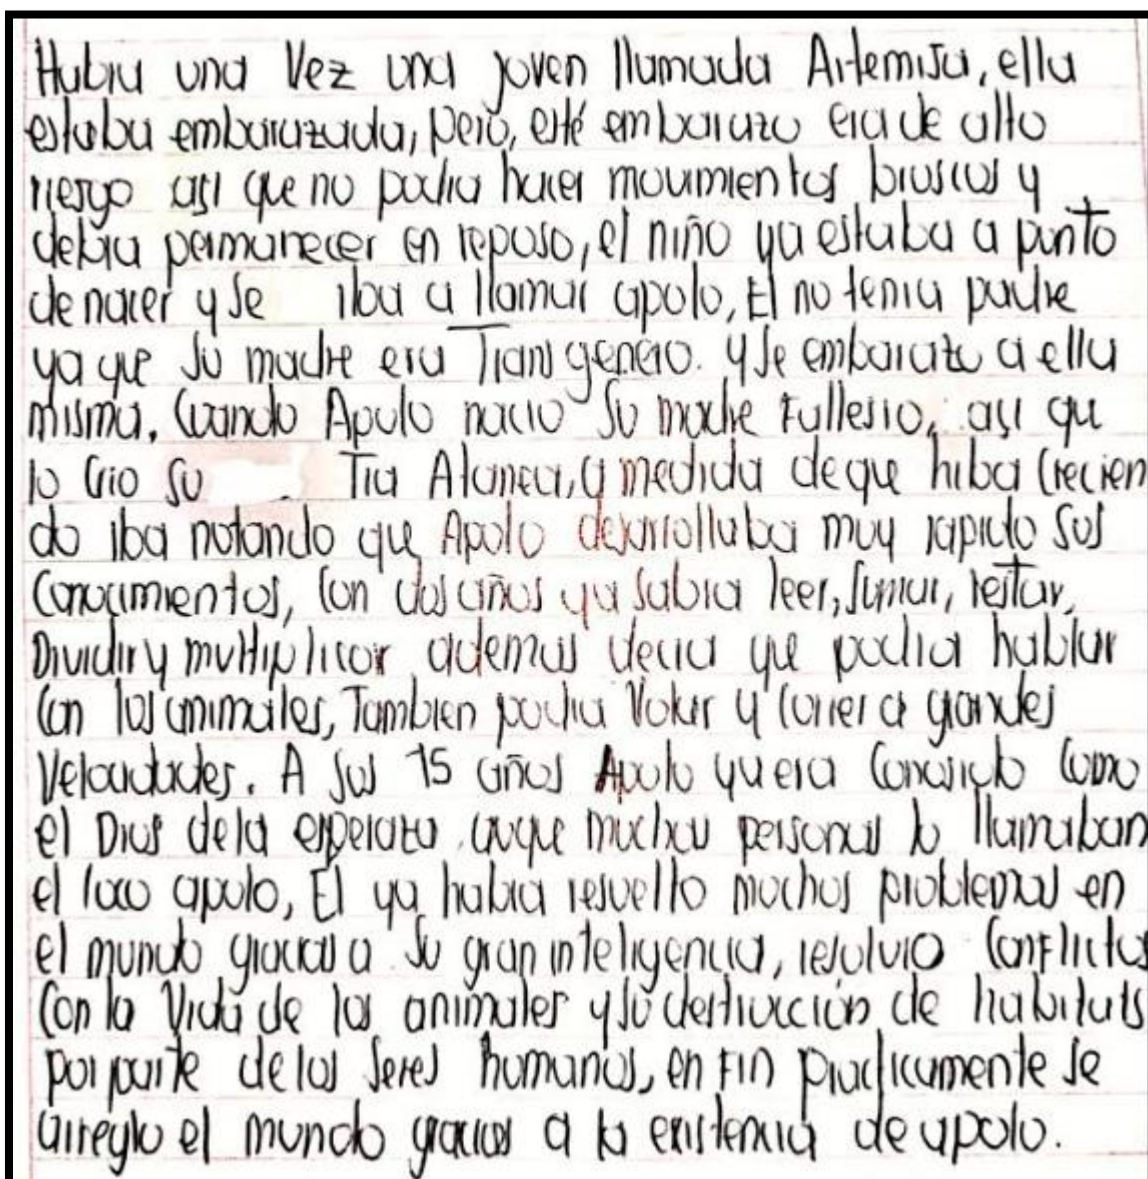 Habia una Vez una joven llamada Artemisa, ella
estaba embarazada, pero, esté embarazo era de alto
riesgo asi que no podia hacer movimientos bruscos y
debia permanecer en reposo, el niño ya estaba a punto
de nacer y se iba a llamar apolo, El no tenia padre
ya que su madre era Transgenero. y se embarazo a ella
misma. Cuando Apolo nacio Su madre Fallesio, asi que
lo crio su Tia Atanea, a medida de que hiba Crecien
do iba notando que Apolo desarrollaba muy rapido Sus
Conocimientos, Con dos años ya sabia leer, sumar, restar,
Dividir y multiplicar ademas decia que podia hablar
Con los animales, Tambien podia Volar y correr a grandes
Velocidades. A sus 15 años Apolo ya era Conosido Como
el Dios de la esperaza auque muchas personas lo llamaban
el loco apolo, El ya habia resuelto muchos problemas en
el mundo gracias a su gran inteligencia, resolvio Conflictos
Con la Vida de los animales y su destrucción de habitats
por parte de los Seres humanos, en Fin practicamente se
arreglo el mundo gracias a la existencia de apolo.